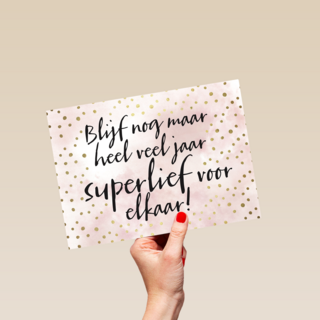 Blijf nog maar
heel veel jaar
superlief voor
elkaar!